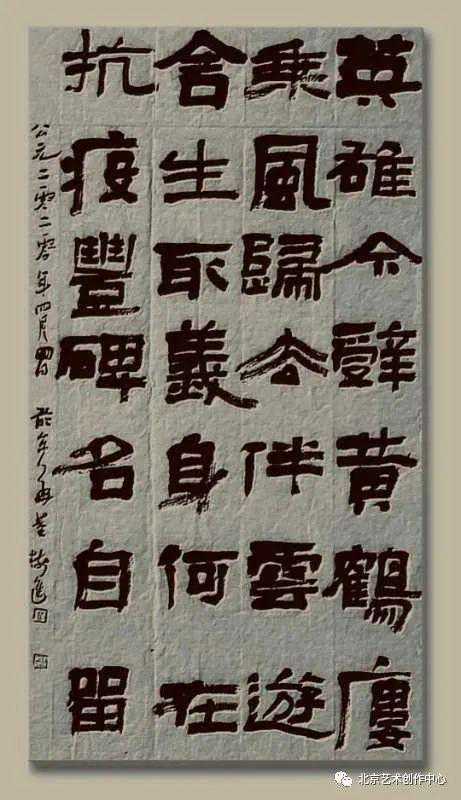 英雄今辟黄鶴廔
乘風歸去伴雲遊
舍生取義身何在
抗疫豐碑名自留
公元二零二零年四月
北京艺术创作中心